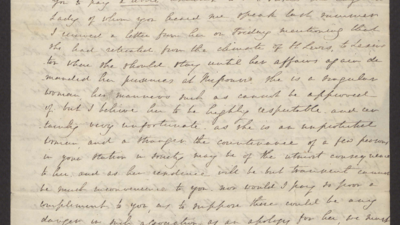 you to pay a
Lady of whom you heard me speak last summer
I received a letter from her on Friday mentioning that
she had retreated from the climate of St Louis, to Lexing
ton where she should stay until her affairs again de
manded her presence at
woman her manners such as cannot be approved
of but I believe her to be highly respectable and cer
tainly very unfortunate as she is an unprotected
woman and a stranger the countenance of a few persons
in your station in society may be of the utmost consequence
to her and as her residence will be but transient cannot
be much inconvenience to you nor would I pay so poor a
compliment to you as to suppose there could be any
danger in such association as an apology for her, we must